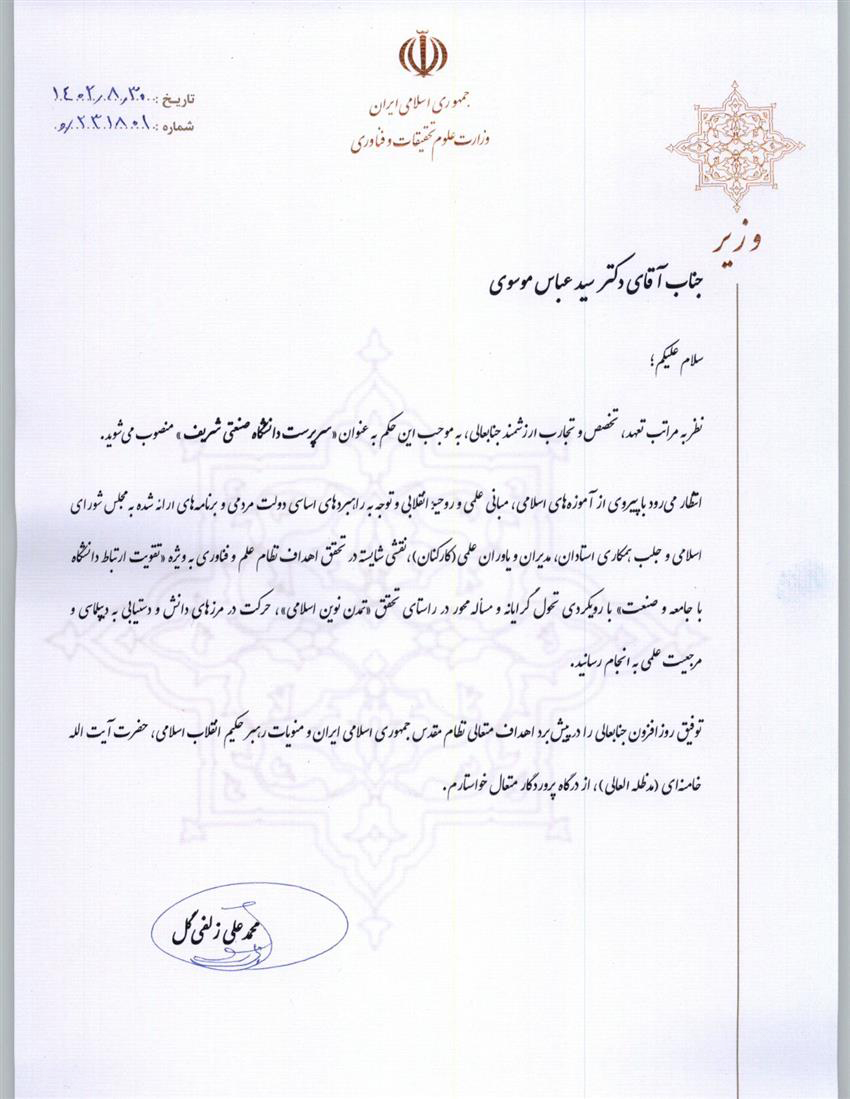 جمهوری اسلامی ایران
وزارت علوم تحقیقات و فناوری
تاریخ : ۱۴۰۲/۸/۳۰
شماره : ۲۳۱۸۰۱/و
وزیر
جناب آقای دکتر سید عباس موسوی
سلام علیکم؛
نظر به مراتب تعهد، تخصص و تجارب ارزشمند جنابعالی، به موجب این حکم به عنوان «سرپرست دانشگاه صنعتی شریف» منصوب می‌شوید.
انتظار می‌رود با پیروی از آموزه‌های اسلامی، مبانی علمی و روحیۀ انقلابی و توجه به راهبردهای اساسی دولت مردمی و برنامه‌های ارائه شده به مجلس شورای
اسلامی و جلب همکاری استادان، مدیران و یاوران علمی(کارکنان)، نقشی شایسته در تحقق اهداف نظام علم و فناوری به ویژه «تقویت ارتباط دانشگاه
با جامعه و صنعت» با رویکردی تحول گرایانه و مسأله محور در راستای تحقق «تمدن نوین اسلامی»، حرکت در مرزهای دانش و دستیابی به دیپلماسی و
مرجعیت علمی به انجام رسانید.
توفیق روز افزون جنابعالی را در پیش برد اهداف متعالی نظام مقدس جمهوری اسلامی ایران و منویات رهبر حکیم انقلاب اسلامی، حضرت آیت الله
خامنه‌ای (مدظله العالی)، از درگاه پروردگار متعال خواستارم.
محمد علی زلفی گل